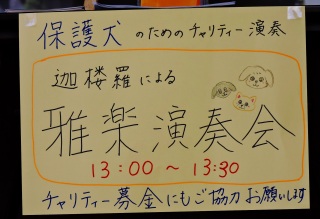 保護犬のためのチャリティー演奏
迦楼羅による
雅楽演奏会
13:00～13:30
チャリティー募金にもご協力お願いします